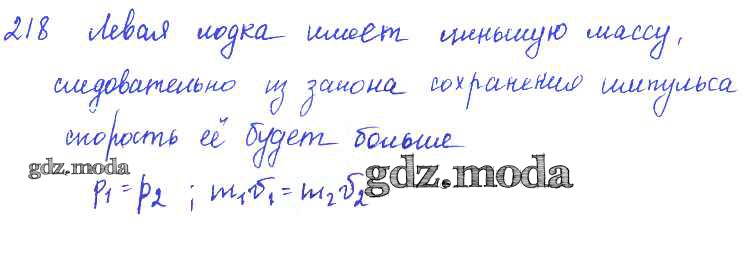 218 Левая лодка имеет меньшую массу,
следовательно из закона сохранения импульса
скорость её будет больше
gdz.moda
gdz.moda
p₁ = p₂ ; m₁υ₁ = m₂υ₂